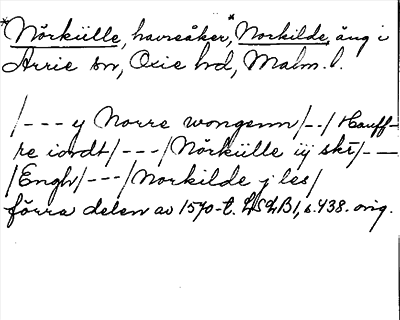 *Nörkülle, havreåker, *Norkilde, äng i
Arrie sn, Oxie hd, Malm. l.
/--- y Norre wongenn/--/Hauff-
re iordt/---/Nörkülle iij skt/---
/Engh/---/Norkilde j les/
förra delen av 1570-t. LSLB1, s. 438. orig.